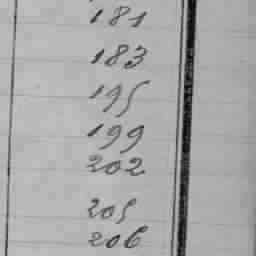 181
183
195
199
202
205
206